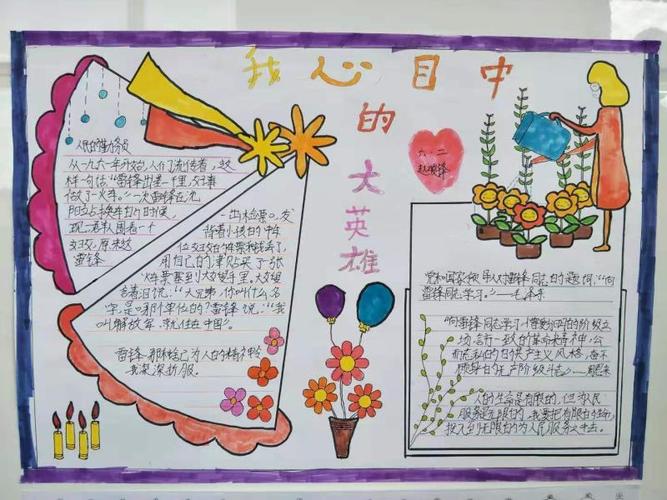 我心目中
的
大
英
雄
六.二
人民的勤务员
从一九六一年开始,人们流传着,这
样一句话:"雷锋出差一千里,好事
做了一火车。"一次雷锋在沈
阳站换车的时候,
现一群人围着一个
妇女,原来这
雷锋
一出检票口,发
背着小孩的中年
位妇女的车票和钱丢了,
用自己的津贴买了一张
火车票塞到大嫂手里,大嫂
含着泪说:"大兄弟,你叫什么名
字,是哪个单位的?"雷锋说:"我
叫解放军,就住在中国。"
雷锋那种舍己为人的精神令
我深深折服。
党和国家领导人对雷锋同志的题词:"向
雷锋同志学习。"——毛泽东
"向雷锋同志学习憎爱分明的阶级立
场,言行一致的革命精神,公
而忘私的共产主义风格,奋不
顾身的无产阶级斗志。"——周恩来
人的生命是有限的,但为人民
服务是无限的,我要把有限的生命
投入到无限的为人民服务之中去。